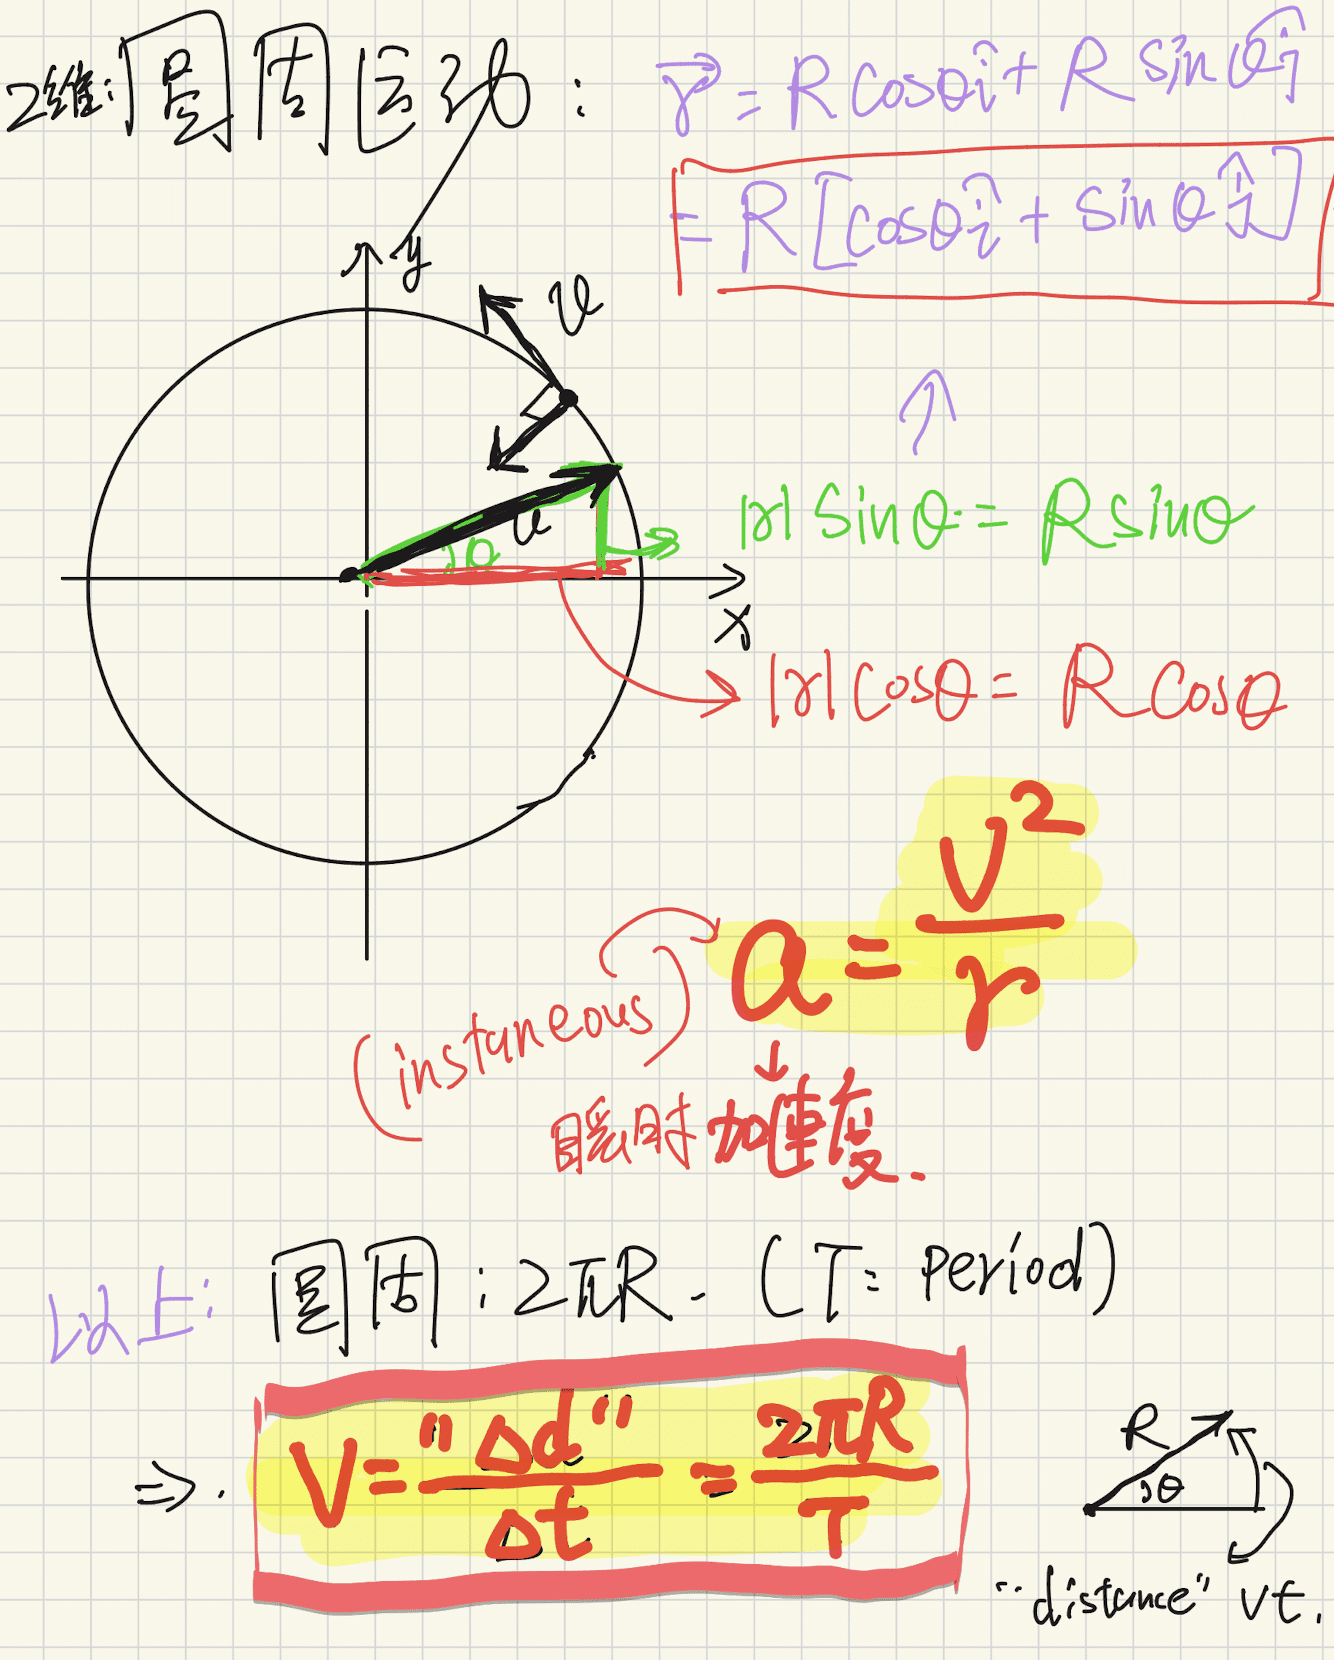 2维:圆周运动:
r⃗ = R cosθ î + R sinθ ĵ
= R [cosθ î + sinθ ĵ]
y
v
a
θ
x
|r| sinθ = R sinθ
|r| cosθ = R cosθ
a = v²/r
(instaneous)
瞬时加速度.
以上: 圆周: 2πR. (T = period)
⇒. V = "Δd"/Δt = 2πR/T
R
θ
"distance" vt.